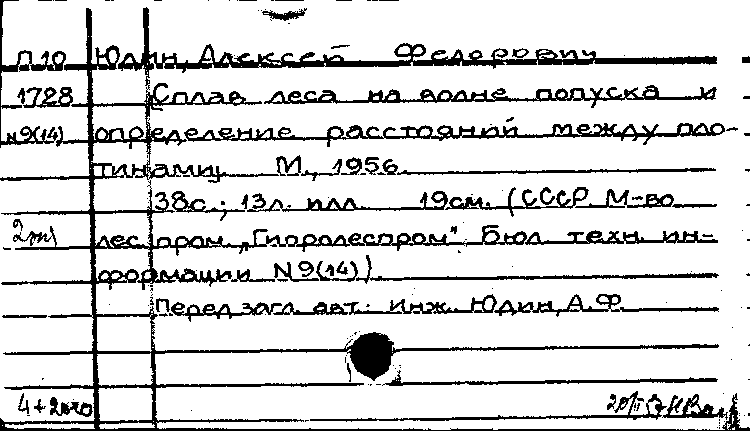 П10 Юдин, Алексей Федорович
1728 Сплав леса на волне попуска и
№9(14) определение расстояний между пло-
тинами. М., 1956.
38с.; 13л. илл. 19см. (СССР М-во
2эк лес. пром. „Гипролеспром". Бюл. техн. ин-
формации №9(14)).
Перед загл. авт.: инж. Юдин, А.Ф.